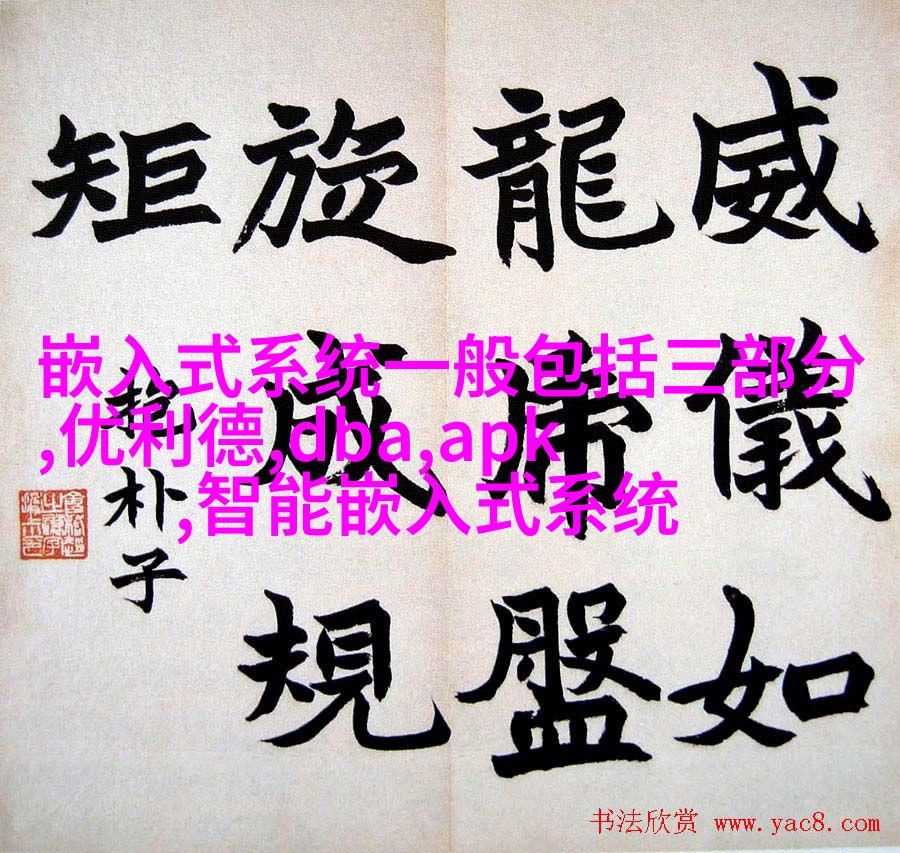 威儀如
龍盤
旋成規
矩
抱朴子
嵌入式系统一般包括三部分
,优利德,dba,apk
,智能嵌入式系统
书法欣赏 www.yac8.com